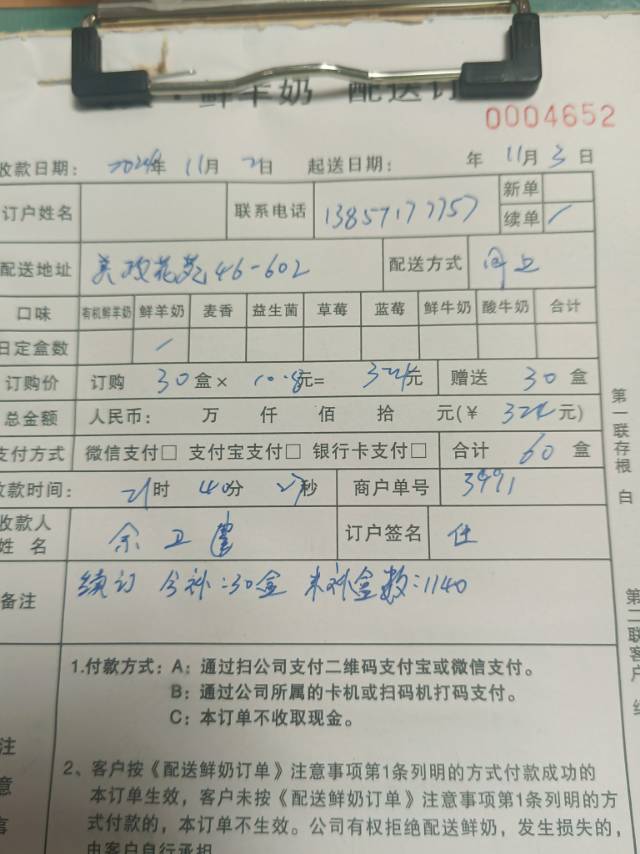 鲜羊奶 配送订
0004652
收款日期： 2024年 11月 2日 起送日期： 年 11月 3日
订户姓名 联系电话 13857177757 新单
续单 /
配送地址 美政花苑46-602 配送方式
口味 有机鲜羊奶 鲜羊奶 麦香 益生菌 草莓 蓝莓 鲜牛奶 酸牛奶 合计
日定盒数 /
订购价 订购 30盒× 10.8元= 324元 赠送 30盒
总金额 人民币： 万 仟 佰 拾 元(￥ 324元)
支付方式 微信支付□ 支付宝支付□ 银行卡支付□ 合计 60盒
收款时间： 21时 40分 27秒 商户单号 3991
收款人
姓 名 余卫 订户签名
备注 续订 今补：30盒 未补盒数：1140
第一联存根 白
第二联客户
1.付款方式：A：通过扫公司支付二维码支付宝或微信支付。
B：通过公司所属的卡机或扫码机打码支付。
C：本订单不收取现金。
注
意
事
2、客户按《配送鲜奶订单》注意事项第1条列明的方式付款成功的
本订单生效，客户未按《配送鲜奶订单》注意事项第1条列明的方
式付款的，本订单不生效。公司有权拒绝配送鲜奶，发生损失的，
由客户自行承担